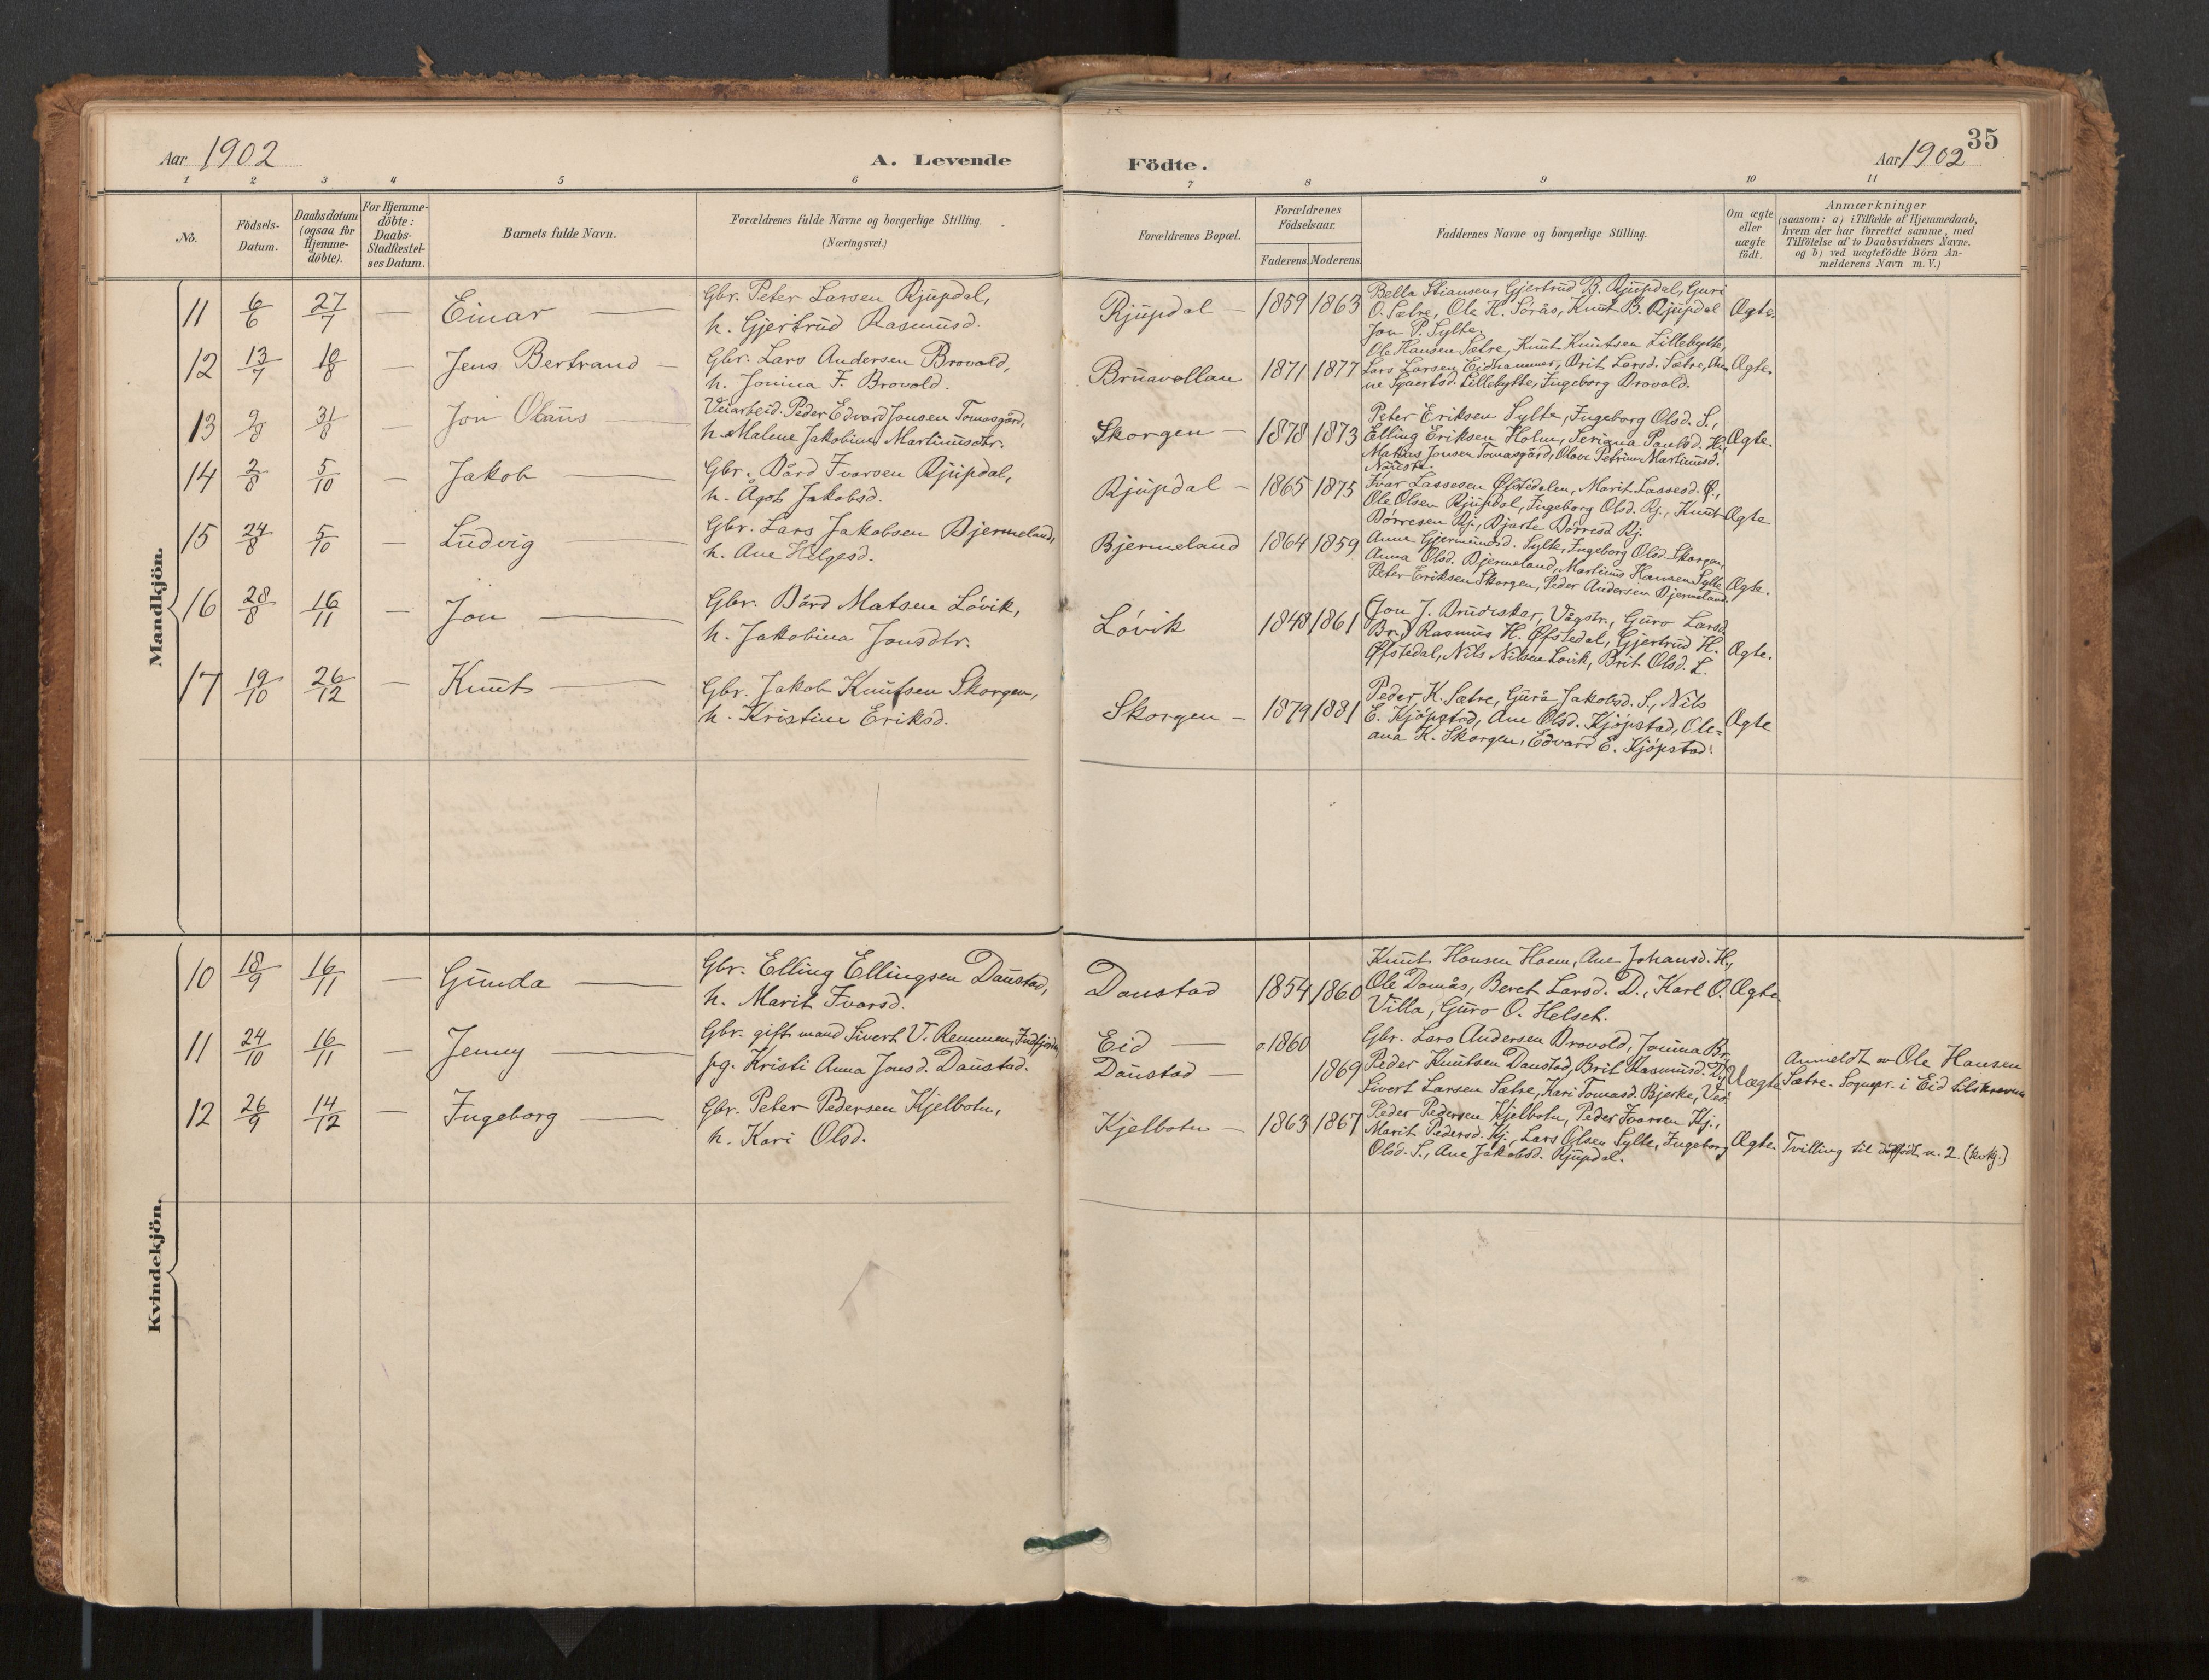 35
Aar 1902
A. Levende
Födte.
Aar 1902
1 2 3 4 5 6 7 8 9 10 11
No.
Födsels-
Datum.
Daabsdatum
(ogsaa for
Hjemme-
döbte).
For Hjemme-
döbte:
Daabs-
Stadfæstel-
ses Datum.
Barnets fulde Navn.
Forældrenes fulde Navne og borgerlige Stilling.
(Næringsvei.)
Forældrenes Bopæl.
Forældrenes
Födselsaar.
Faderens. Moderens.
Faddernes Navne og borgerlige Stilling.
Om ægte
eller
uægte
födt.
Anmærkninger
(saasom: a) i Tilfælde af Hjemmedaab,
hvem der har forrettet samme, med
Tilföielse af to Daabsvidners Navne,
og b) ved uægtefödte Börn An-
melderens Navn m. V.)
Mandkjön.
11 6/6 27/7 — Einar —
Gbr. Peter Larsen Rjúpdal,
h. Gjertrud Rasmusd.
Rjúpdal — 1859 1863
Bella Stiansen, Gjertrud B. Rjúpdal, Guri
O. Sætre, Ole H. Sörås, Knut B. Rjúpdal
Jon P. Sylte.
Ægte.
12 13/7 10/8 — Jens Bertrand —
Gbr. Lars Andersen Brovold,
h. Jonina F. Brovold.
Bruavollan 1871 1877
Ole Hansen Sætre, Knut Knutsen Lillebytte,
Lars Larsen Eidhammer, Brit Larsd. Sætre, An-
ne Sjuertsd. Lillebytte, Ingeborg Brovold.
Ægte.
13 2/8 31/8 — Jon Olaus —
Veiarbeid. Peder Edvard Jonsen Tomasgård,
h. Malene Jakobine Martinusdtr.
Skorgen — 1878 1873
Peter Eriksen Sylte, Ingeborg Olsd. S.,
Elling Eriksen Holm, Seriana Paulsd. H.,
Matias Jonsen Tomasgård, Olave Petrine Martinusd.
Nauste.
Ægte.
14 2/8 5/10 — Jakob —
Gbr. Bård Ivarsen Rjúpdal,
h. Ågot Jakobsd.
Rjúpdal — 1865 1875
Ivar Lassesen Øfstedalen, Marit Lassesd. Ø.,
Ole Olsen Rjúpdal, Ingeborg Olsd. Rj., Knut
Börresen Rj., Bjarte Börresd. Rj.
Ægte
15 24/8 5/10 — Ludvig —
Gbr. Lars Jakobsen Bjermeland,
h. Ane Helgesd.
Bjermeland 1864 1859
Anne Gjermundsd. Sylte, Ingeborg Olsd. Skorgen,
Anna Olsd. Bjermeland, Martinus Hansen Sylte,
Peter Eriksen Skorgen, Peder Andersen Bjermeland.
Ægte.
16 28/8 16/11 — Jon —
Gbr. Bård Matsen Lövik,
h. Jakobina Jonsdtr.
Lövik 1848 1861
(Jon J. Brudeskar, Vågstr., Guro Larsd.
Br.) Rasmus H. Øfstedal, Gjertrud H.
Øfstedal, Nils Nilsen Lövik, Brit Olsd. L.
Ægte.
17 19/10 26/12 — Knut —
Gbr. Jakob Knutsen Skorgen,
h. Kristine Eriksd.
Skorgen — 1879 1881
Peder K. Sætre, Gurå Jakobsd. S., Nils
E. Kjöpstad, Ane Olsd. Kjöpstad, Ole=
ana K. Skorgen, Edvard E. Kjöpstad.
Ægte
Kvindekjön.
10 18/9 16/11 — Gunda —
Gbr. Elling Ellingsen Daustad,
h. Marit Ivarsd.
Daustad 1854 1860
Knut Hansen Hoem, Ane Johansd. H.,
Ole Domås, Beret Larsd. D., Karl O.
Villa, Guro O. Helset.
Ægte.
11 24/10 16/11 — Jenny —
Gbr. gift mand Sivert V. Remmem, Indfjorden,
pg. Kristi Anna Jonsd. Daustad.
Eid — c. 1860
Daustad — 1869
Gbr. Lars Andersen Brovold, Jonina Br.,
Peder Knutsen Daustad, Brit Rasmusd. D.,
Sivert Larsen Sætre, Kari Tomasd. Bjerke, Ved.
Uægte
Anmeldt av Ole Hansen
Sætre. Sognepr. i Eid tilskreven
12 26/9 14/12 — Ingeborg —
Gbr. Peter Pedersen Kjelbotn,
h. Kari Olsd.
Kjelbotn — 1863 1867
Peder Pedersen Kjelbotn, Peder Ivarsen Kj.,
Marit Pedersd. Kj., Lars Olsen Sylte, Ingeborg
Olsd. S., Ane Jakobsd. Rjúpdal.
Ægte
Tvilling til dödfödt n. 2 (kvkj.)